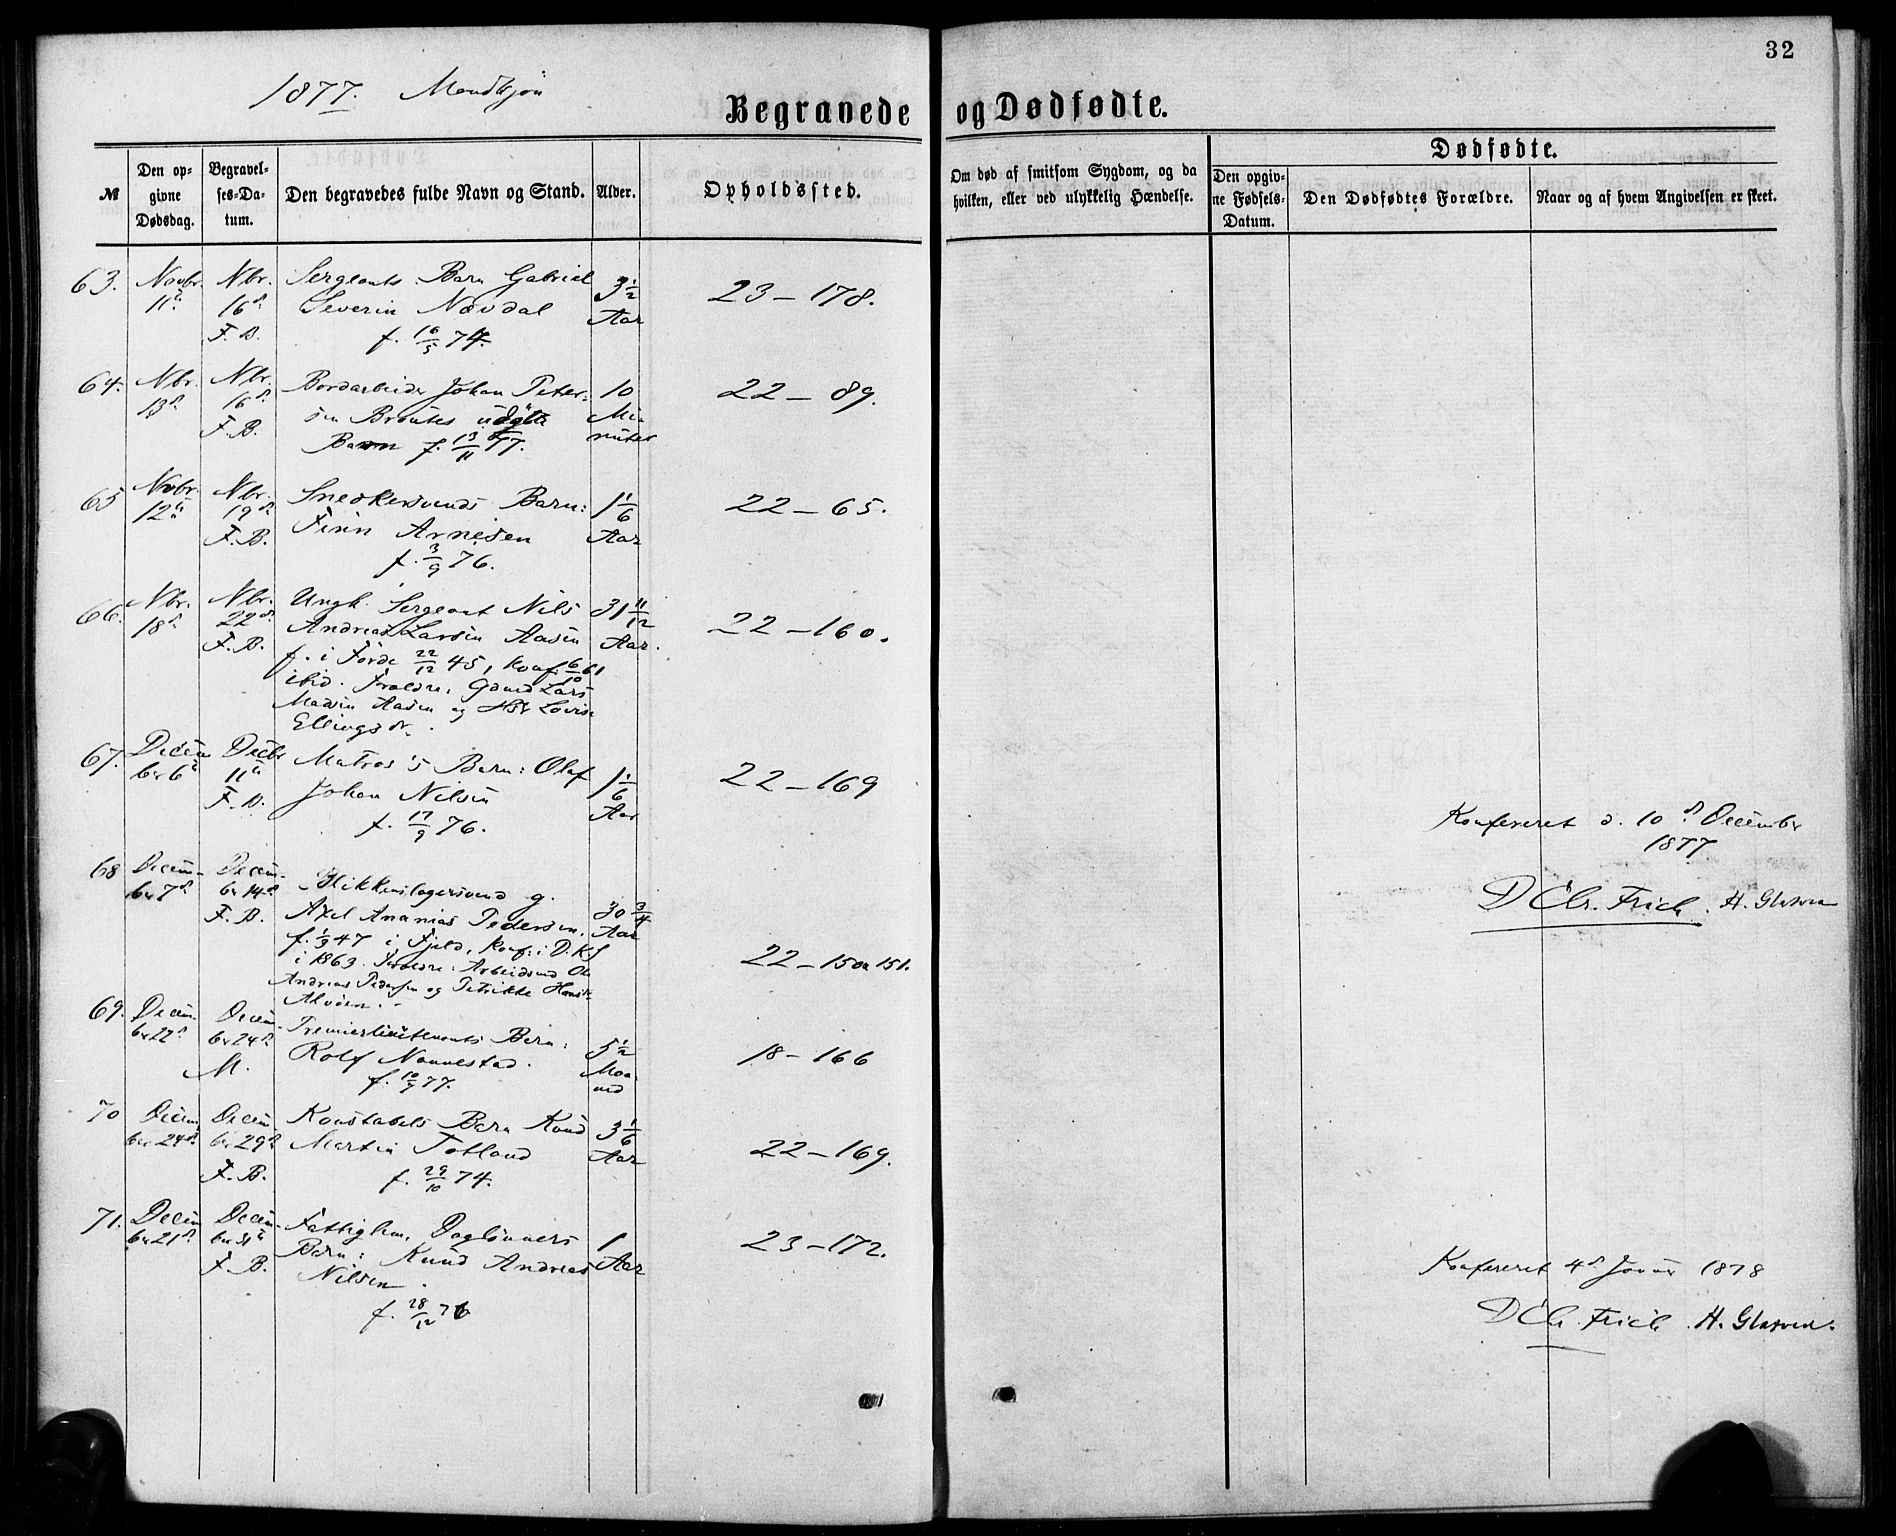 32
1877. Mandkjøn
Begravede og Dødfødte.
№
Den opgivne Dødsdag.
Begravelses-Datum.
Den begravedes fulde Navn og Stand.
Alder.
Opholdssted.
Om død af smitsom Sygdom, og da hvilken, eller ved ulykkelig Hændelse.
Dødfødte.
Den opgivne Fødsels-Datum.
Den Dødfødtes Forældre.
Naar og af hvem Angivelsen er skeet.
63. Novbr. Nbr. Sergeants Barn Gabriel 3 1/2 23 – 178.
11te 16de Severin Nævdal Aar
F. B. f. 16/5 74.
64. Nbr. Nbr. Bordarbeider Johan Peter- 10 22 – 89.
13de 16de sen udøbte Mi-
F. B. Barn f. 13/11 77. nuter
65 Novbr. Nbr. Snedkersvends Barn: 1 1/6 22 – 65.
12te 19de Finn Arnesen Aar
F. B. f. 3/9 76.
66. Nbr. Nbr. Ungk. Sergeant Nils 31 11/12 22 – 160.
18de 22de Andreas Larsen Aasen Aar.
F. B. f. i Førde 22/12 45, konf. 6/10 61
ibid. Forældre: Gdmd Lars
Madsen Aasen og Hstr Lovise
Ellingsdr.
67. Decem- Decbr Matros's Barn: Olaf 1 1/6 22 – 169
ber 6te 11te Johan Nilsen Aar
F. B. f. 17/9 76.
68 Decem- Decem- Blikkenslagersvend g.
ber 7de ber 14de Axel Ananias Pedersen. 30 3/4
F. B. f. 1/3 47 i Fjeld, konf. i D.K. Aar
i 1863. Forældre: Arbeidsmd Ole 22 – 150a 151.
Andreas Pedersen og Petrikke Hansdr
Alvøen.
69. Decem- Decem- Premierlieutenants Barn: 5 1/2 18 – 166
ber 22de ber 24de Rolf Nannestad. Maa-
M. f. 10/7 77. ned
70 Decem Decem Konstabels Barn Knud 3 1/6 22 – 169.
ber 24de ber 29de Martin Totland Aar
F. B. f. 29/10 74.
71. Decem Decem- Fattiglem, Daglønners 1 23 – 172.
ber 21de ber 31te Barn: Knud Andreas Aar
F. B. Nilsen.
f. 28/12 76
Konfereret d. 10de December
1877
D Chr. Frich. H. Glatved
Konfereret 4de Januar 1878
D Chr. Frich. H. Glatved.